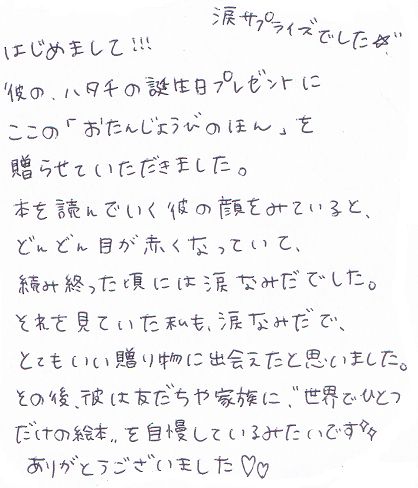 涙サプライズでした☆〃
はじめまして!!!
彼の、ハタチの誕生日プレゼントに
ここの「おたんじょうびのほん」を
贈らせていただきました。
本を読んでいく彼の顔をみていると、
どんどん目が赤くなっていて、
続み終った頃には涙なみだでした。
それを見ていた私も、涙なみだで、
とてもいい贈り物に出会えたと思いました。
その後、彼は友だちや家族に、〝世界でひとつ
だけの絵本〟を自慢しているみたいです✧✧
ありがとうございました♡♡